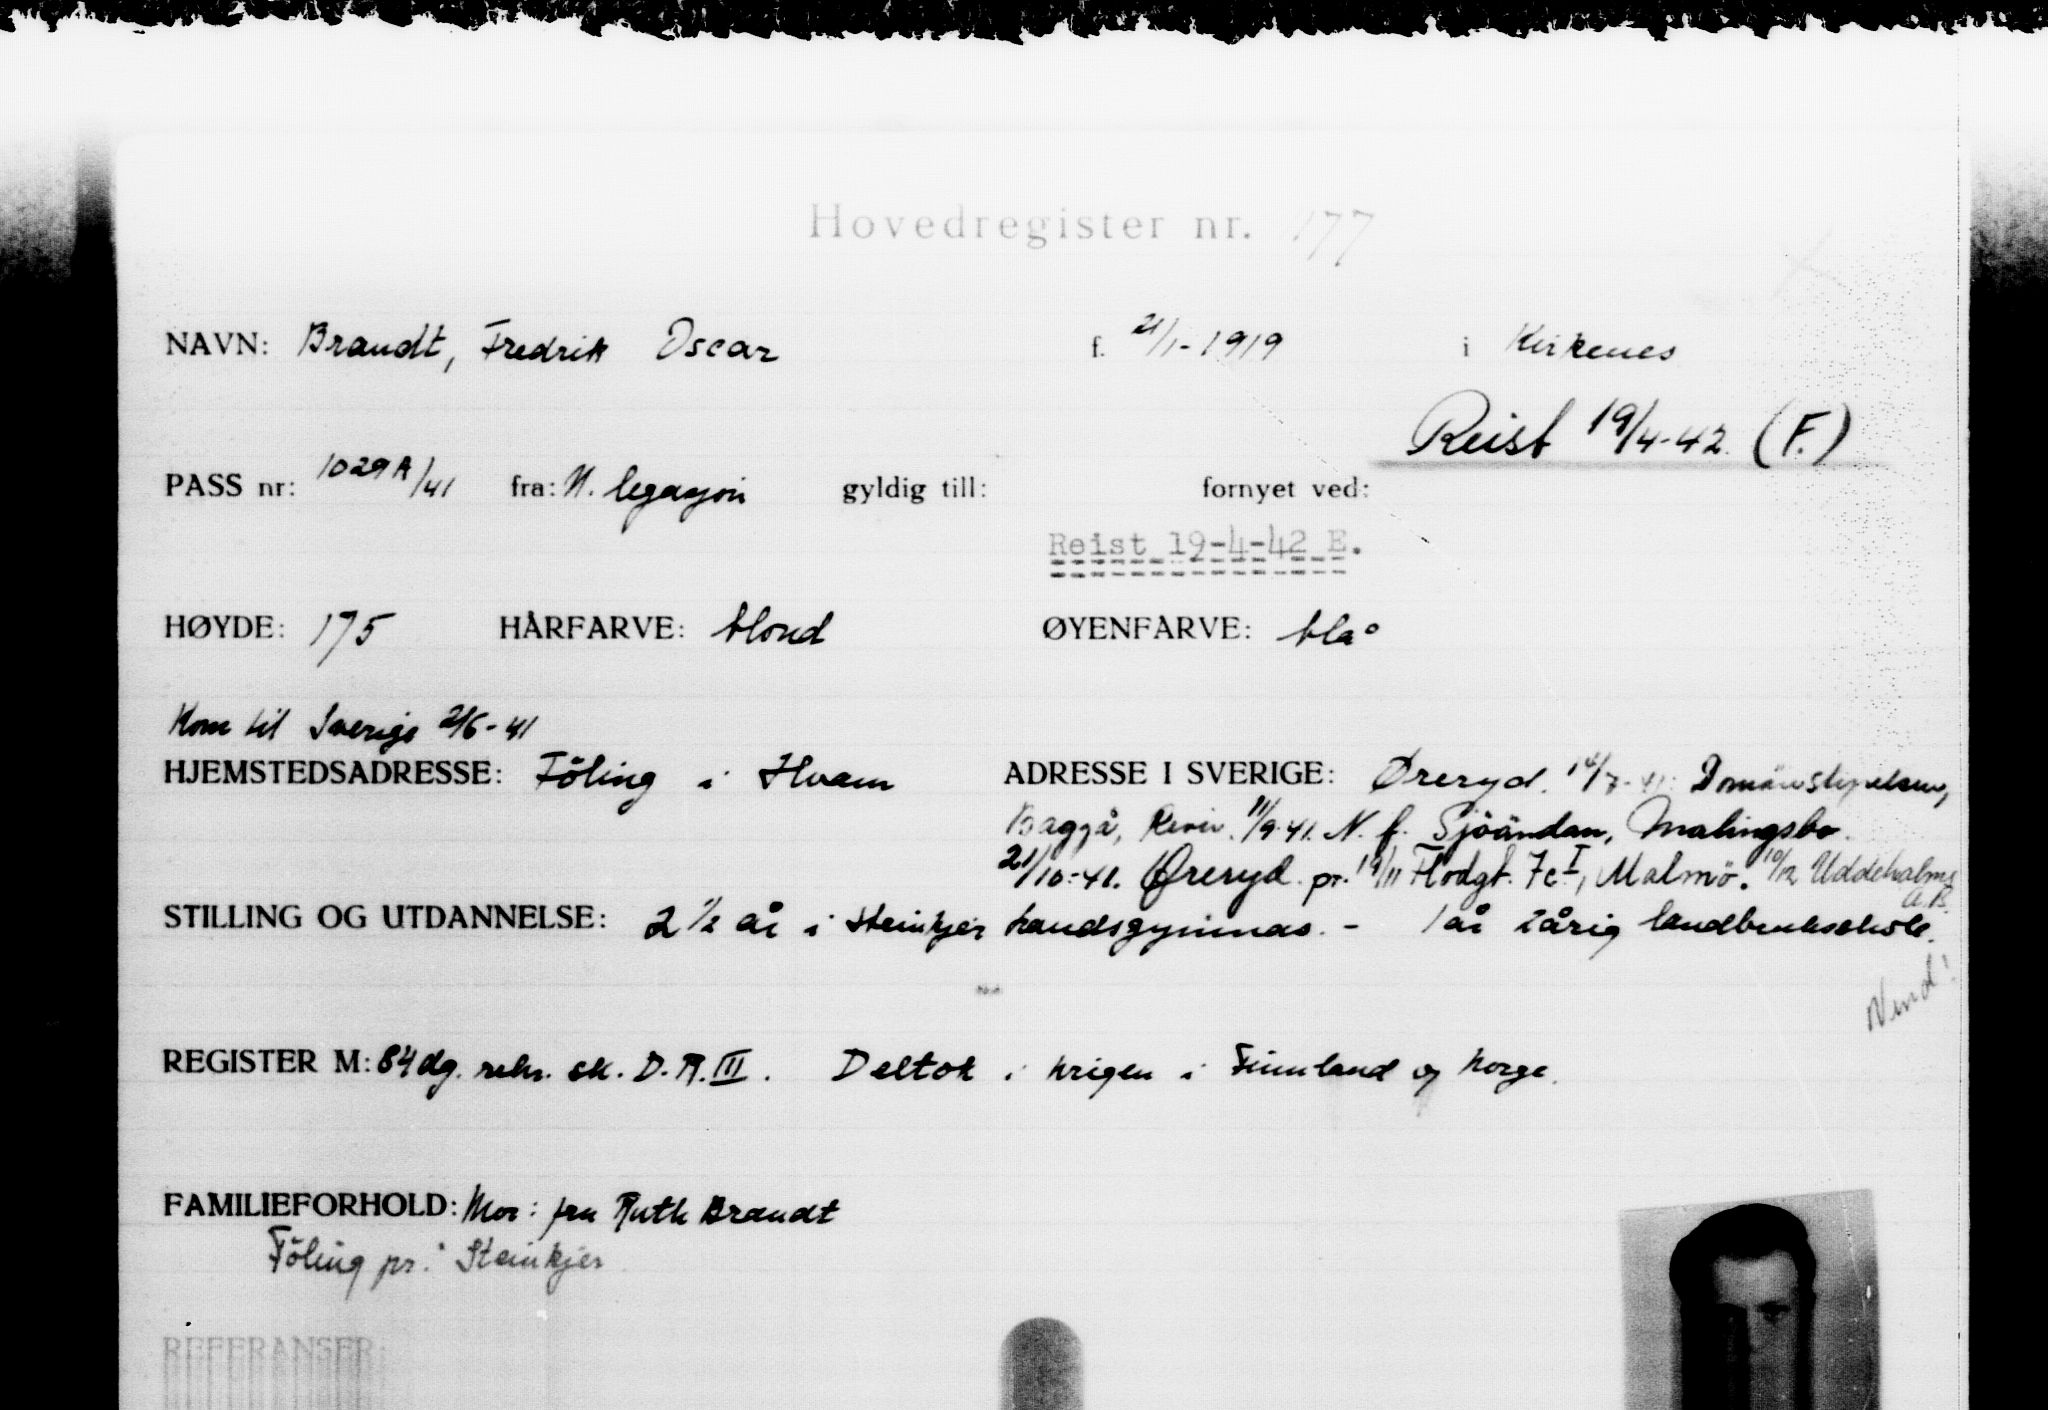 Hovedregister nr. 177
NAVN: Brandt, Fredrik Oscar f. 21/1-1919 i Kirkenes
Reist 19/4-42. (F.)
PASS nr: 1029A/41 fra: N. legasjon gyldig till: fornyet ved:
Reist 19-4-42 E.
HØYDE: 175 HÅRFARVE: blond ØYENFARVE: blå
Kom til Sverige 2/6-41
HJEMSTEDSADRESSE: Föling i Hvam ADRESSE I SVERIGE: Øreryd. 14/7-41: Domänstyrelsen,
Baggå, Revir. 11/9-41. N. f. Sjöändan, Malingsbo.
21/10-41. Øreryd pr. 19/11 Flodgt. 7c I, Malmö. 10/12 Uddeholms
A.B.
STILLING OG UTDANNELSE: 2 1/2 år i Steinkjer landsgymnas. - 1 år 2årig landbruksskole.
Vend!
REGISTER M: 84 dg. rekr. sk. D.R.III. Deltok i krigen i Finnland og Norge.
FAMILIEFORHOLD: Mor: fru Ruth Brandt
Föling pr. Steinkjer
REFERANSER: